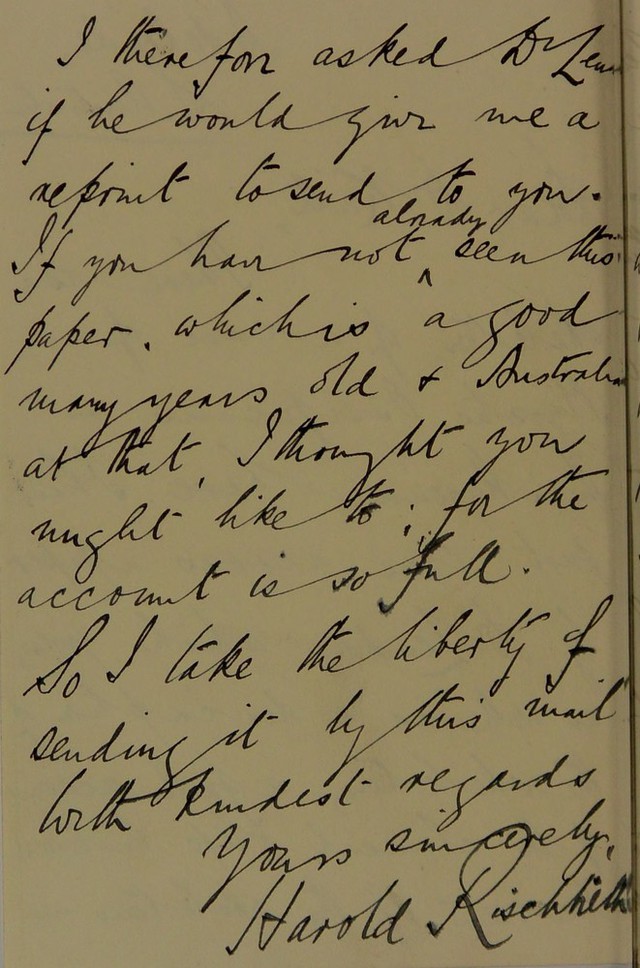 I therefore asked Dr
if he would give me a
reprint to send to you.
If you have not ^ already seen this
paper, which is a good
many years old & Australian
at that, I thought you
might like to; for the
account is so full.
So I take the liberty of
sending it by this mail
With kindest regards
Yours sincerely,
Harold Rischbieth